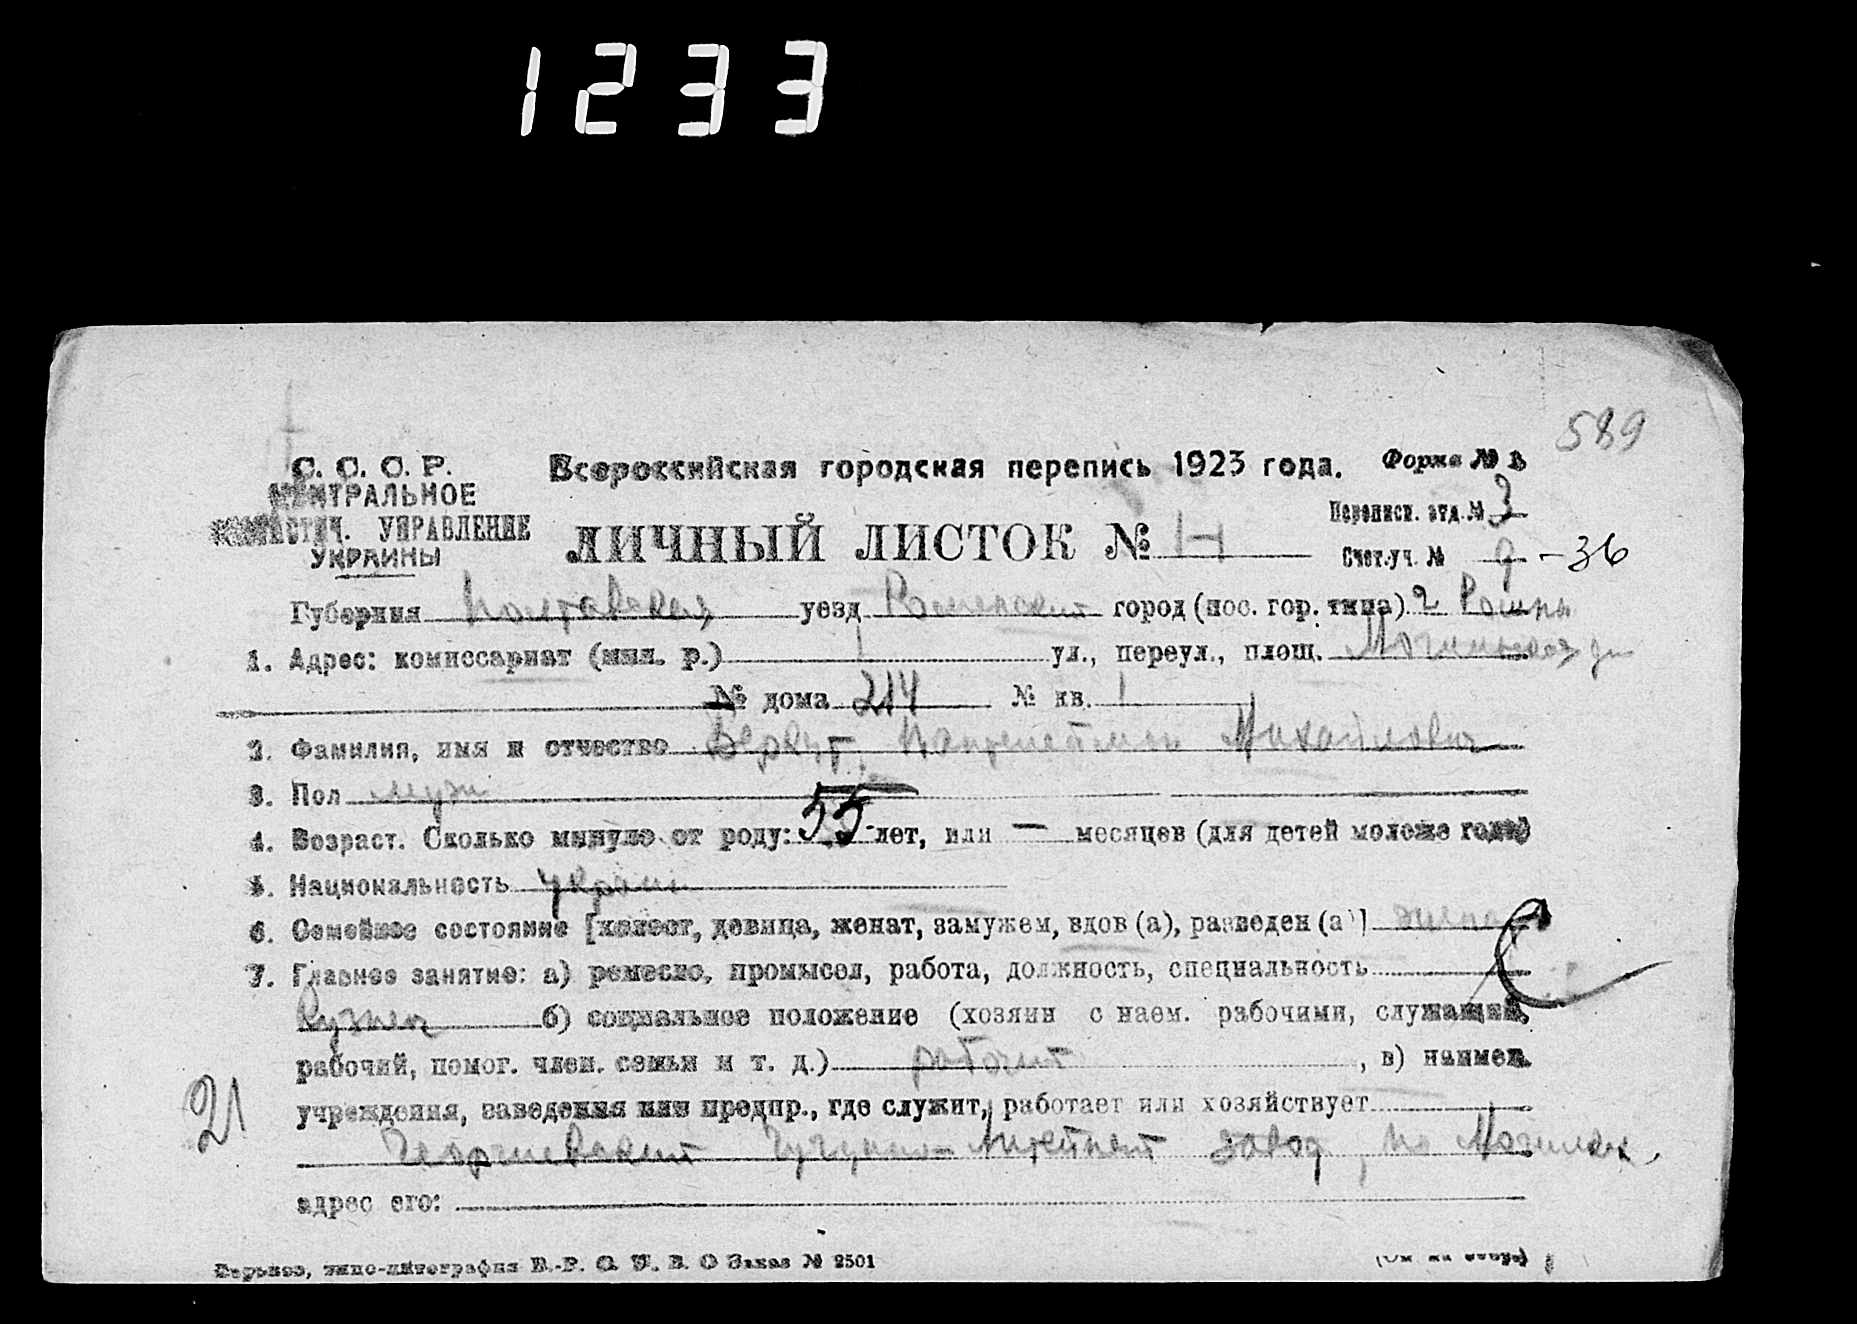 1233
589
С. С. С. Р.
ЦЕНТРАЛЬНОЕ
СТАТИСТИЧ. УПРАВЛЕНИЕ
УКРАИНЫ
Всероссийская городская перепись 1923 года. Форма № 1
Переписн. отд. № 3
ЛИЧНЫЙ ЛИСТОК №
Счет. уч. № 9 - 36
Губерния Полтавская уезд Роменский город (пос. гор. типа) г Ромны
1. Адрес: комиссариат (мил. р.) 1 ул., переул., площ.
№ дома 214 № кв. 1
2. Фамилия, имя и отчество Михайлович
3. Пол муж
4. Возраст. Сколько минуло от роду: 55 лет, или — месяцев (для детей моложе года)
5. Национальность украин
6. Семейное состояние [холост, девица, женат, замужем, вдов (а), разведен (а)] женат
7. Главное занятие: а) ремесло, промысел, работа, должность, специальность
Кузнец б) социальное положение (хозяин с наем. рабочими, служащий,
рабочий, помог. член. семьи и т. д.) рабочий , в) наимен.
учреждения, заведения или предпр., где служит, работает или хозяйствует
21
Георгиевский Чугунно-Литейный завод,
адрес его:
типо-литография Заказ № 2501
(См. на обор.)